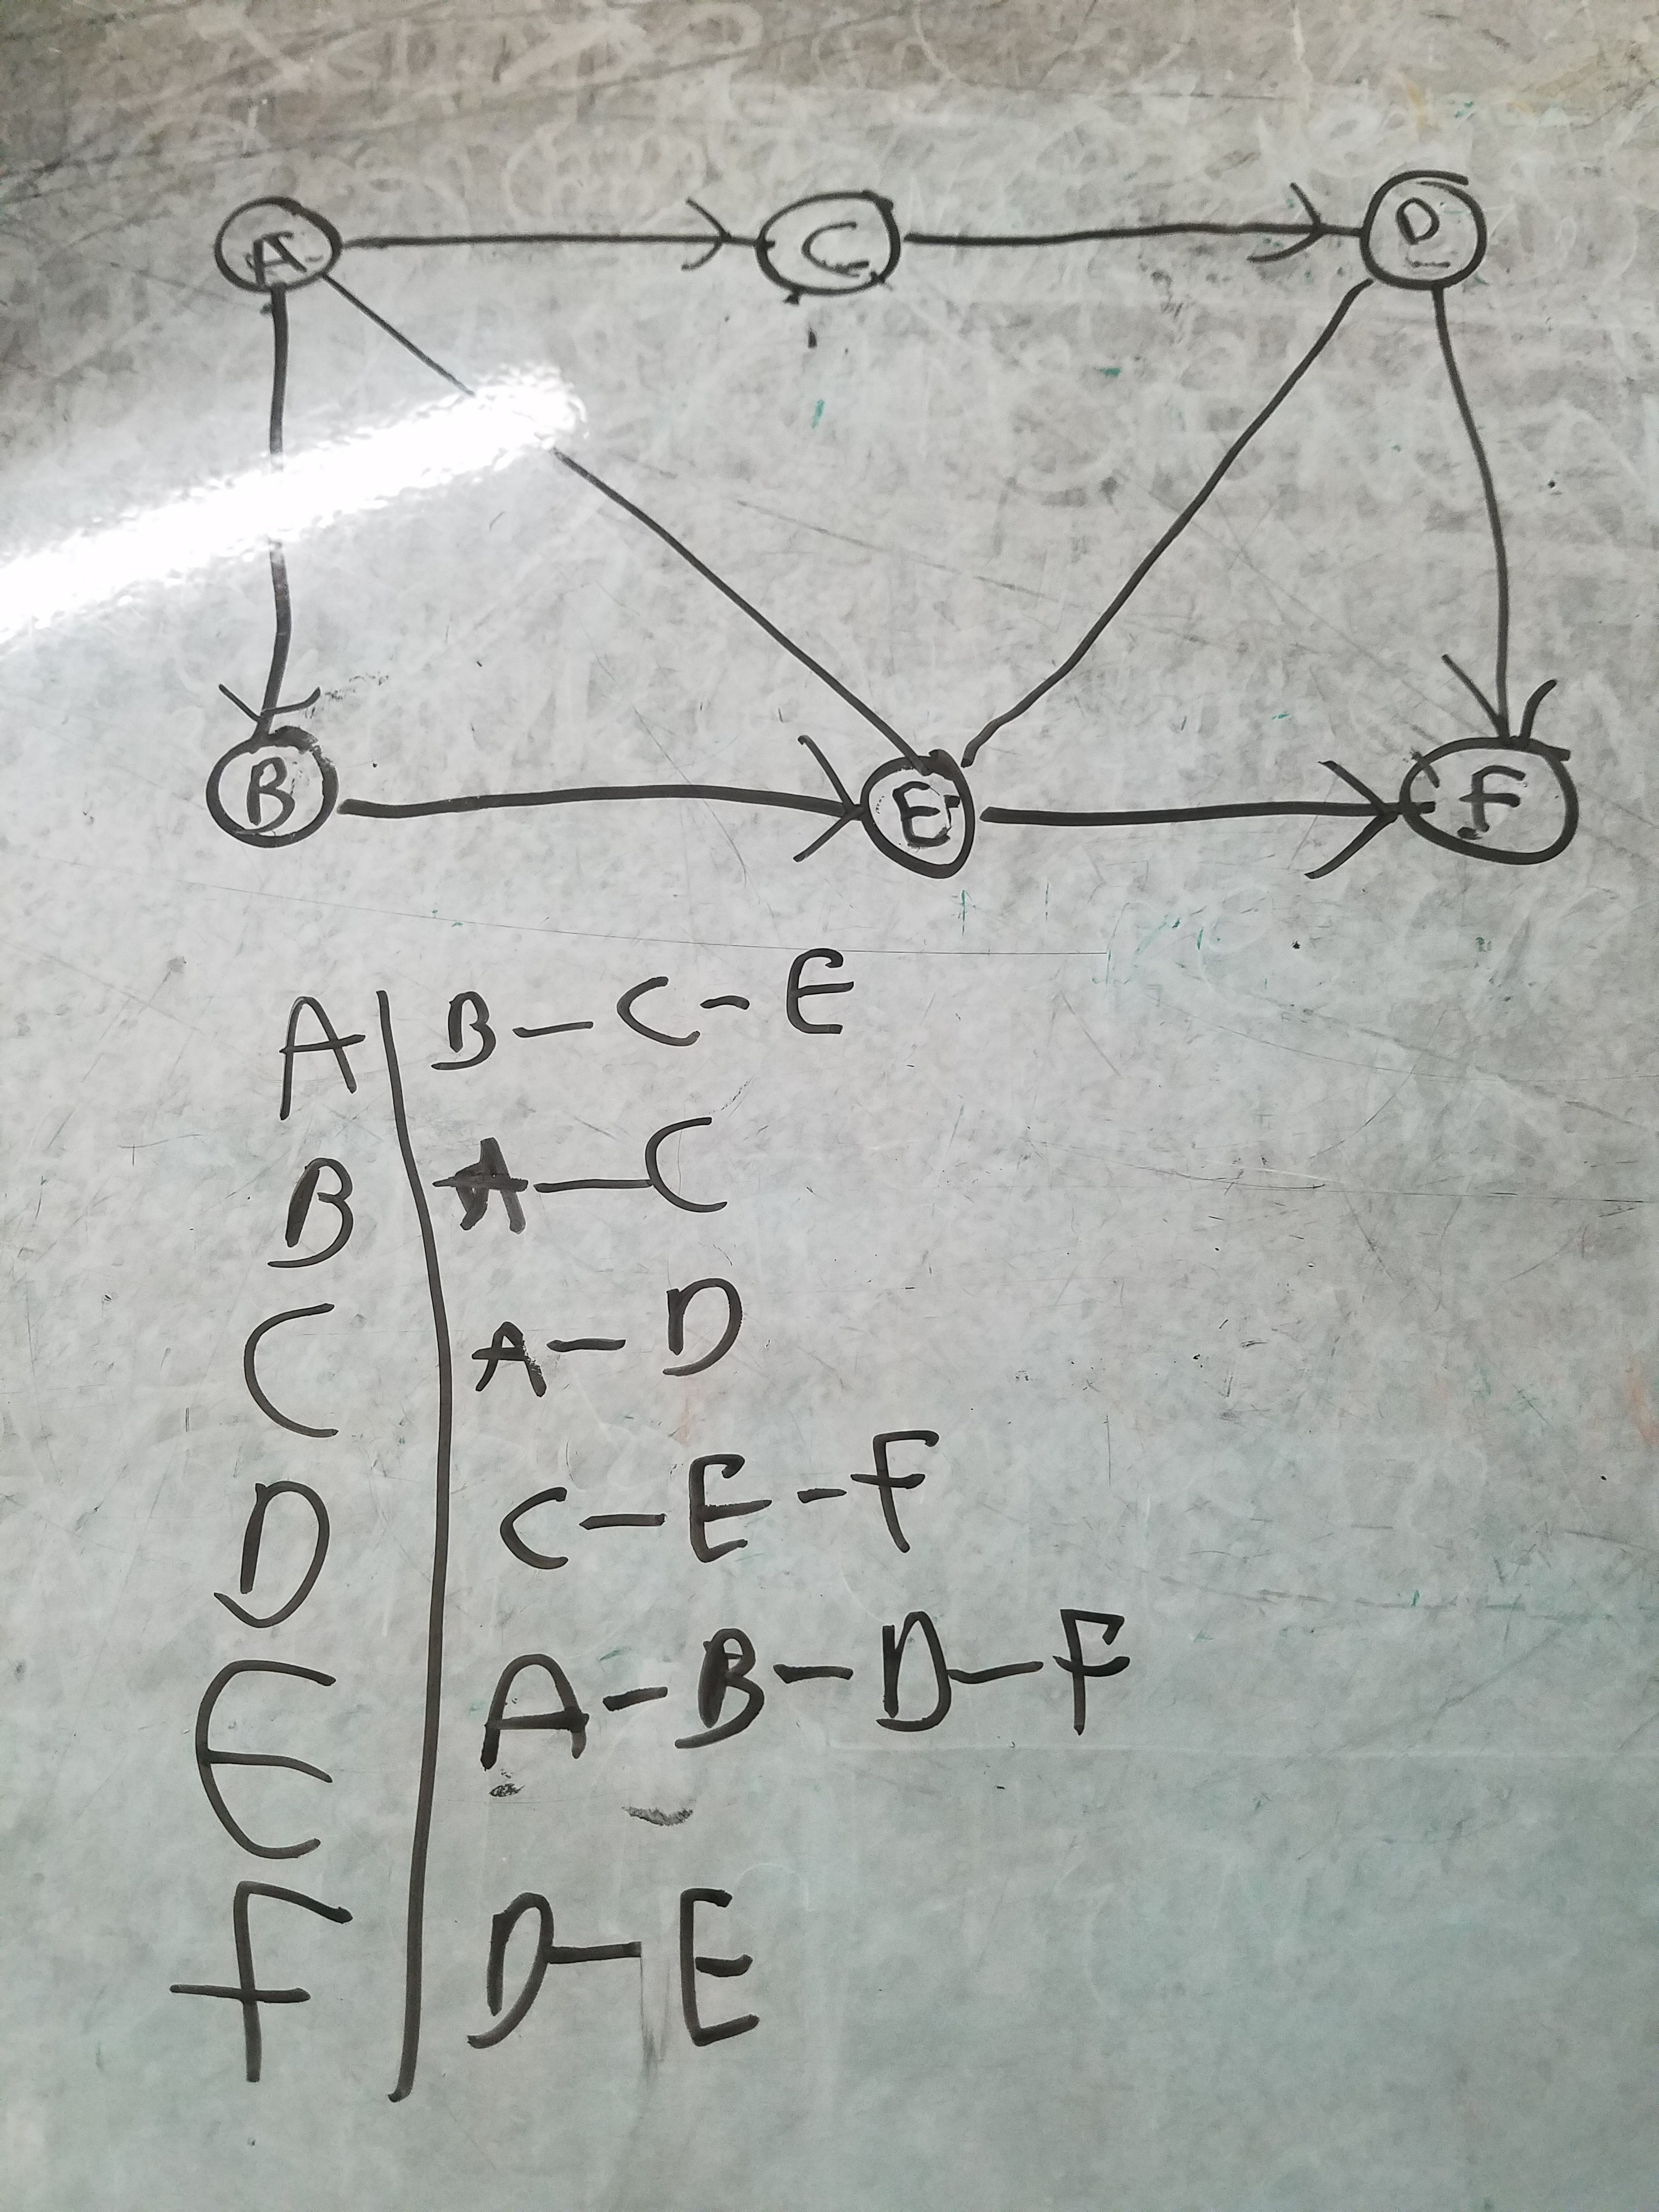 A C D
B E F
A | B - C - E
B | A - C
C | A - D
D | C - E - F
E | A - B - D - F
F | D - E